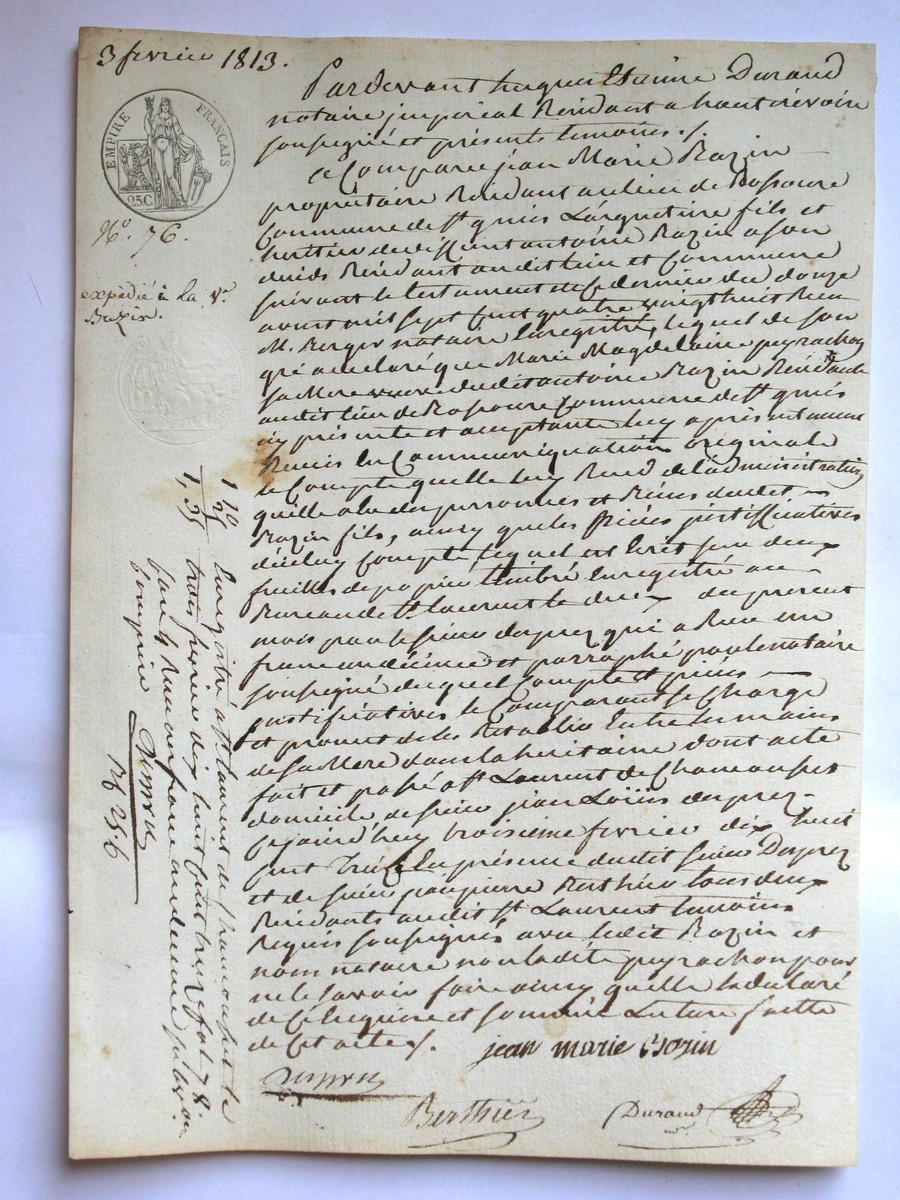 3 fevrier 1813.
EMPIRE FRANÇAIS
25C
N.º 76.
expédié à la V.e
Bazin.
Pardevant hugues Etienne Durand
notaire jmperial Residant a haut
soussigné et présents temoins ./.
a Comparu jean Marie Bazin
propriétaire Residant au lieu de Bossoure
Commune de st genies Largentiere fils et
heritier de antoine Bazin a son
deceds Residant audit lieu et Commune
suivant le testament de Ce dernier du douze
avout mil sept Cent quatre vaingt huit Reçu
M. Berger notaire Enregistré, lequel de son
gré a declaré que Marie Magdelaine peyrachon
sa Mere veuve dudit antoine Bazin Residante
audit lieu de Bossoure Commune de st genies
icy présente et acceptante luy a présentement
Remis En Communiquation originale
le Compte quelle luy Rend de l'administration
quelle a Eu des personnes et Biens dudit
Bazin fils, ainsy que les pièces justifficatives
diceluy Compte lequel est Ecrit sur deux
feuilles de papier timbré Enregistré au
Bureau de st Laurent le deux du present
mois par le sieur duprez qui a Reçu un
franc un décime et parraphé par le notaire
soussigné duquel Compte et pièces
justificatives le Comparant se Charge
Et promet de les Retablir Entre les mains
de sa Mere dans la huitaine dont acte
fait et passé a st Laurent de Chamousset
domicile de sieur jean Loüis duprez
Cejourd'huy troisieme fevrier dix huit
Cent Treize En présence dudit sieur Duprez
et de sieur jean pierre Berthier tous deux
Residants audit st Laurent temoins
Requis soussignés avec ledit Bazin et
nous notaire non ladite peyrachon pour
ne le savoir faire ainsy quelle la declaré
de Ce Enquise et sommée Lecture faitte
de Cet acte ./.
jean marie Bozin
Duprez
Berthier
Durand
Enregistré a st Laurent de Chamousset le
trois fevrier dix huit Cent treize fol. 78.
Case 4 Reçu un franc un decime
Compris
Duprez
1 "
10
1, 35
R 25.c